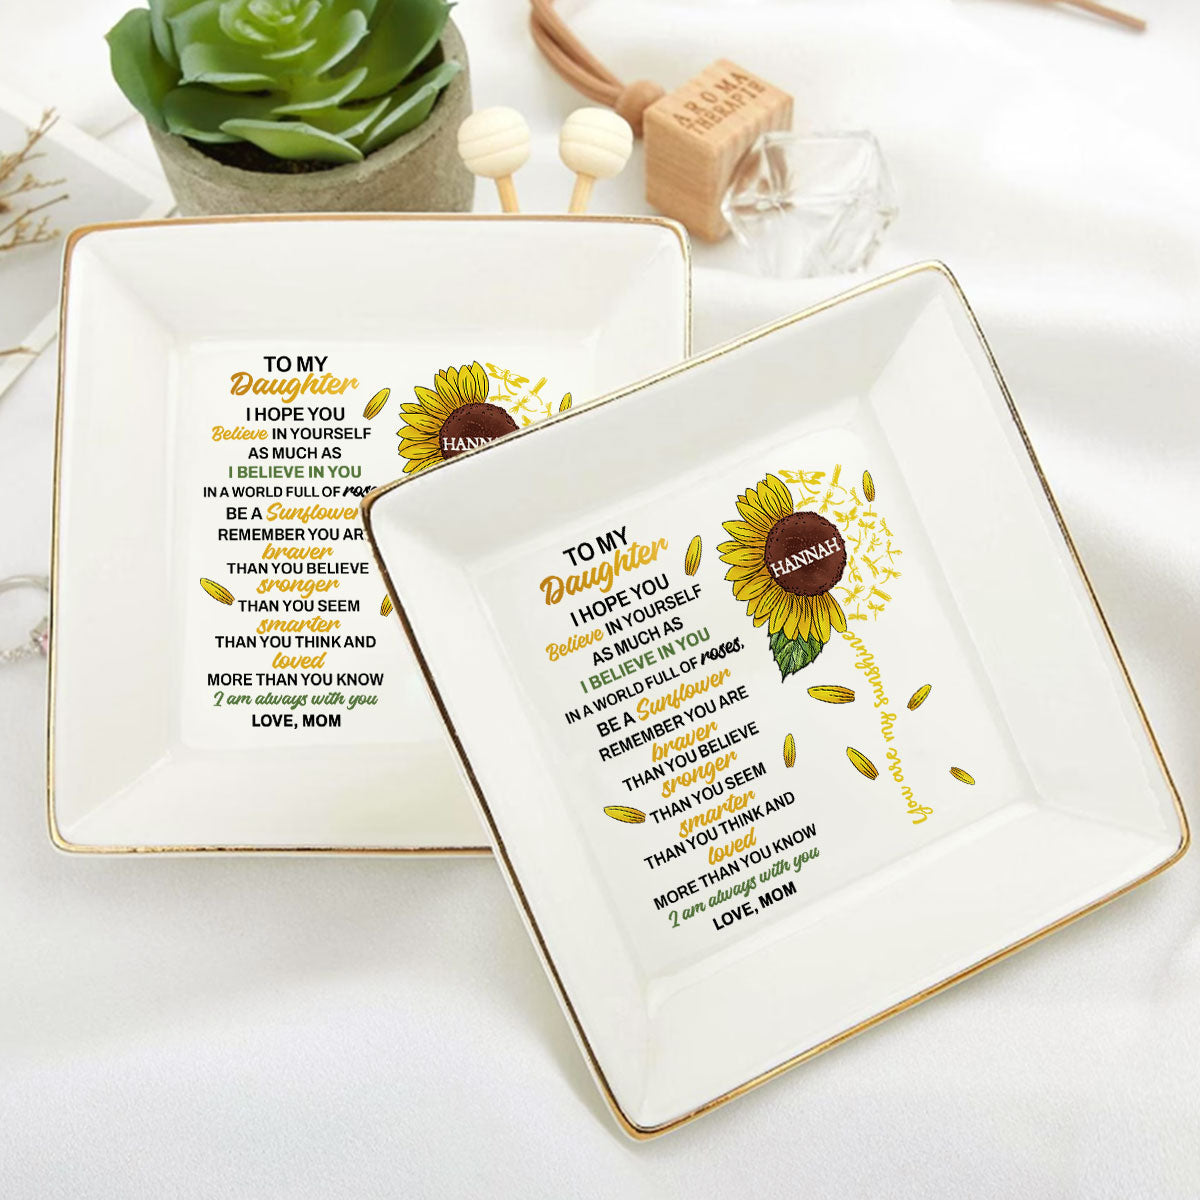 AROMA
THERAPIE
TO MY
Daughter
I HOPE YOU
Believe IN YOURSELF
AS MUCH AS
I BELIEVE IN YOU
IN A WORLD FULL OF roses
BE A Sunflower
REMEMBER YOU AR
braver
THAN YOU BELIEVE
sronger
THAN YOU SEEM
smarter
THAN YOU THINK AND
loved
MORE THAN YOU KNOW
I am always with you
LOVE, MOM
HANNA
TO MY
Daughter
I HOPE YOU
Believe IN YOURSELF
AS MUCH AS
I BELIEVE IN YOU
IN A WORLD FULL OF roses,
BE A Sunflower
REMEMBER YOU ARE
braver
THAN YOU BELIEVE
sronger
THAN YOU SEEM
smarter
THAN YOU THINK AND
loved
MORE THAN YOU KNOW
I am always with you
LOVE, MOM
HANNAH
You are my sunshine